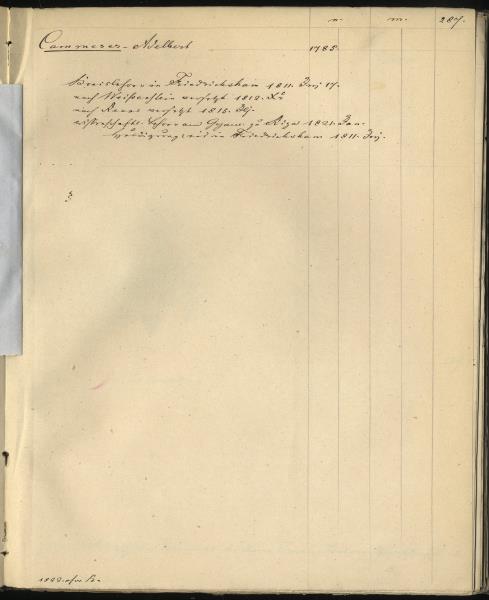 n. m. 287.
Cammerer. Adelbert 1785.
Kreislehrer in Friedrichsham 1811. Frj 17.
nach Weissenstein versetzt 1812.
nach Reval versetzt 1815.
wissenschaftl. Lehrer am Gymn. zu Riga 1821. Jan.
in Friedrichsham 1811. Frj.